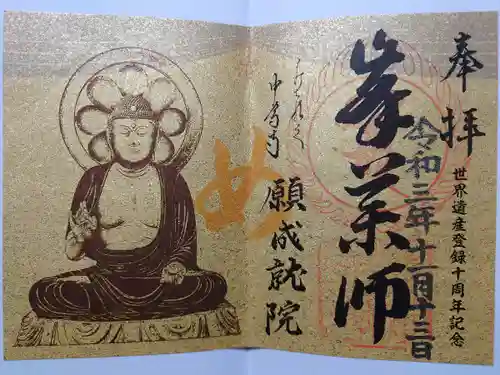 奉拝
世界遺産登録十周年記念
令和三年十一月十三日
峯薬師
め
中尊寺
願成就院